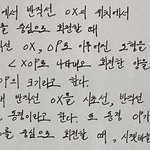 에서 반직선 OX의 위치에서
중심으로 회전한 때
선 OX, OP로 이루어진 도형을
< XOP로 나타내고 회전한 양을
OP의 크기라고 한다.
때 반직선 OX을 시초선, 반직선
동경이라고 한다. 또 동경 OP가
O를 중심으로 회전할 때, 시곗바늘